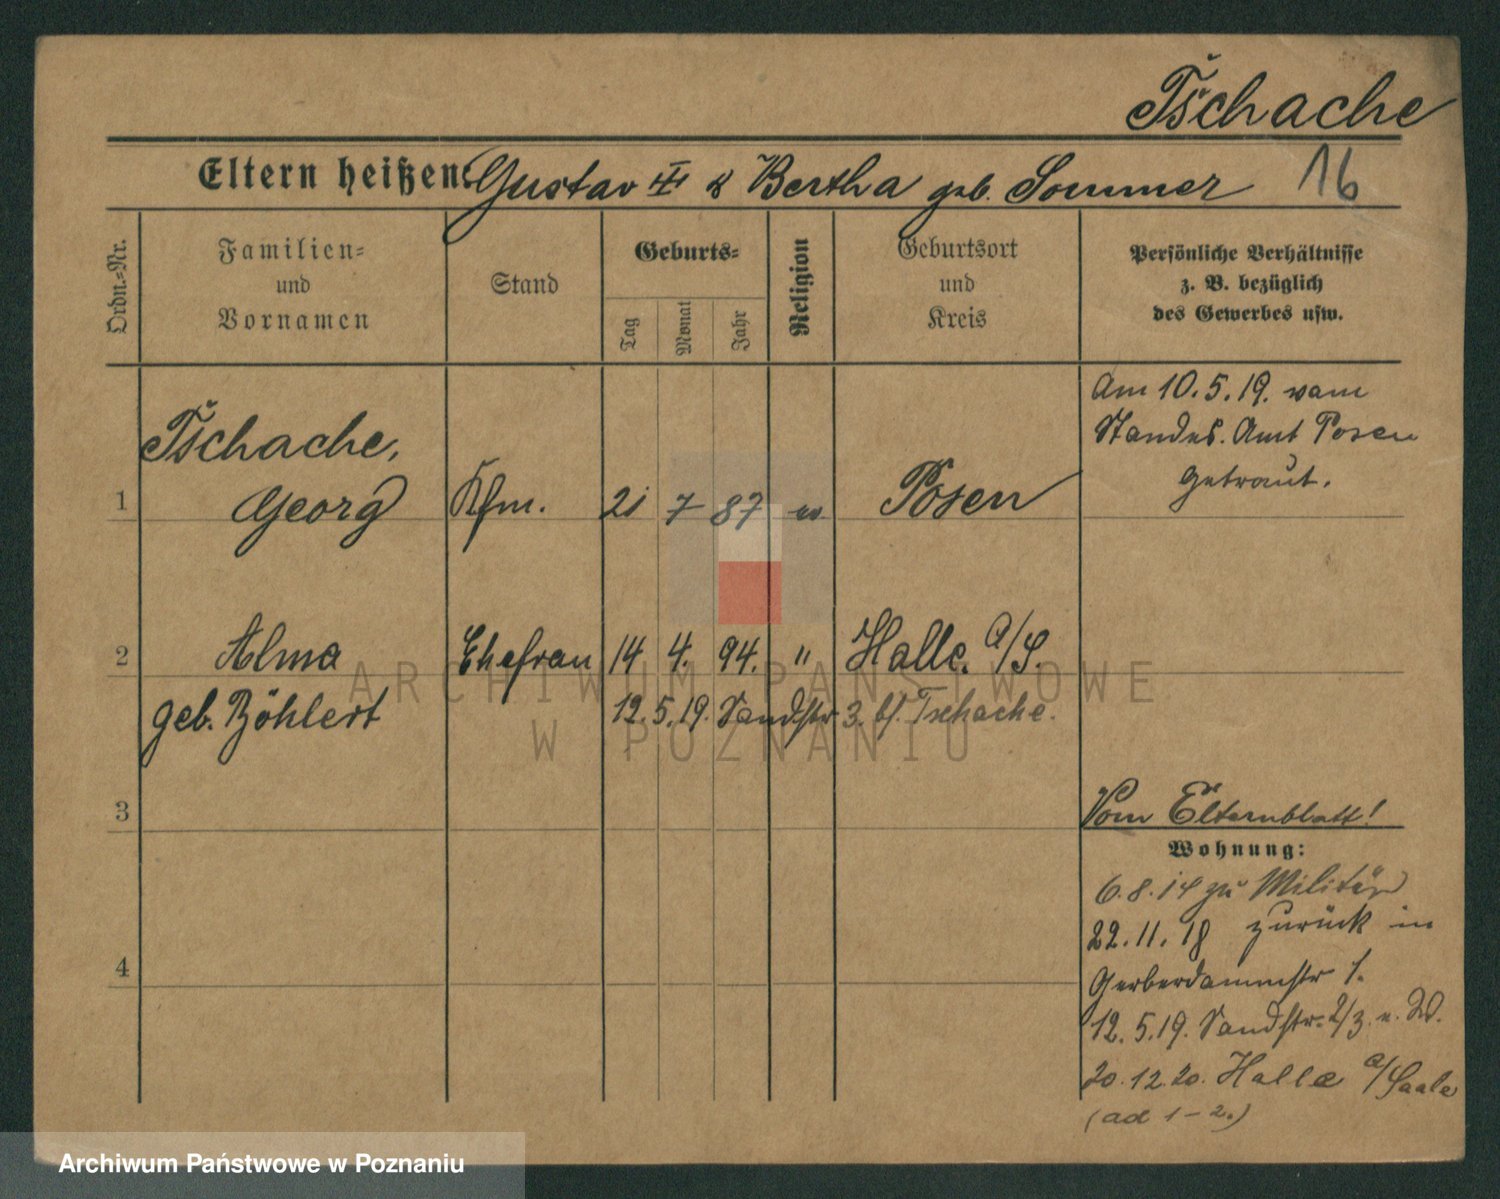 Tschache
Eltern heißen: Gustav III & Bertha geb. Sommer 16
Ordn.=Nr.
Familien=
und
Vornamen
Stand
Geburts=
Tag
Monat
Jahr
Religion
Geburtsort
und
Kreis
Persönliche Verhältnisse
z. B. bezüglich
des Gewerbes usw.
Am 10.5.19. vom
Standes. Amt Posen
getraut.
Tschache,
1 Georg Kfm. 21 7 87 ev Posen
2 Alma Ehefrau 14 4. 94. " Halle. a/S.
geb. Böhlert 12.5.19. Sandstr 3. bf. Tschache.
3
Vom Elternblatt!
Wohnung:
6.8.14 zu Militär
22.11.18 zurück in
4
Gerberdammstr 1.
12.5.19. Sandstr. 2/3. n. W.
20.12.20. Halle a/Saale
(ad 1-2.)
ARCHIWUM PAŃSTWOWE
W POZNANIU
Archiwum Państwowe w Poznaniu